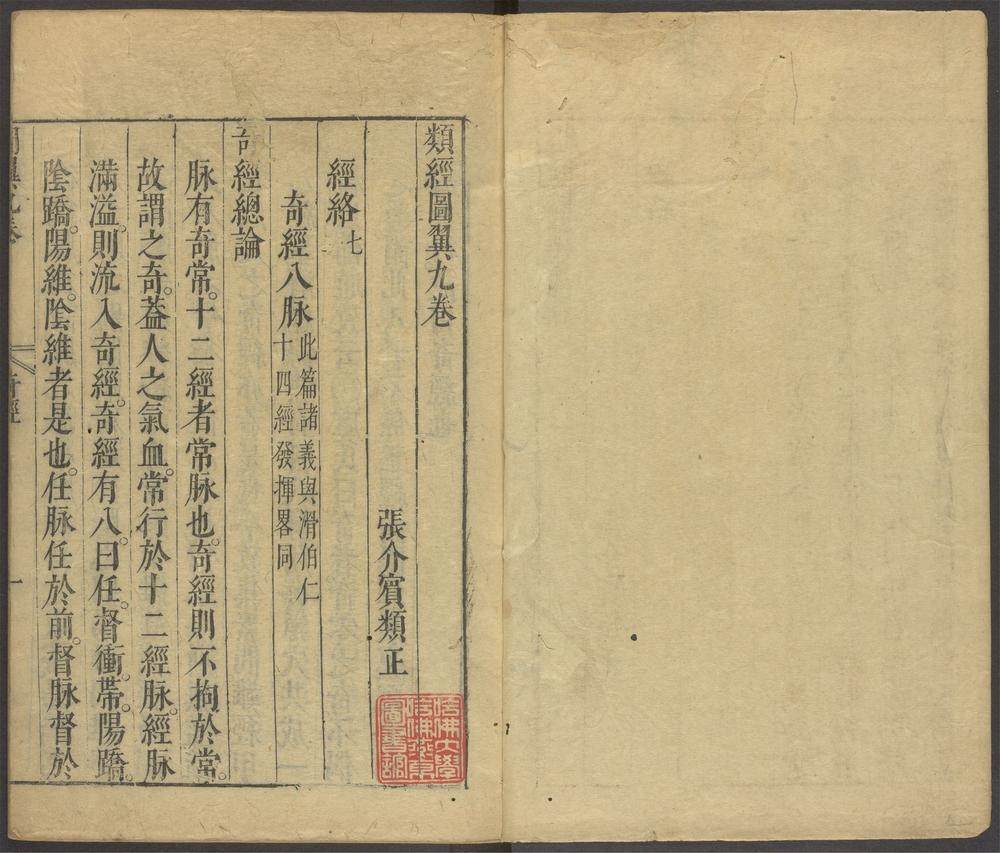 類經圖翼九卷
張介賓類正
經絡七
奇經八脉 此篇諸義與滑伯仁
十四經發揮畧同
奇經總論
脉有奇常。十二經者常脉也。奇經則不拘於常。
故謂之奇。葢人之氣血。常行於十二經脉。經脉
滿溢。則流入奇經。奇經有八。曰任。督衝。帶。陽蹻。
陰蹻。陽維。陰維者是也。任脉任於前。督脉督於
奇經
一
哈佛大學
哈佛燕京
圖書館